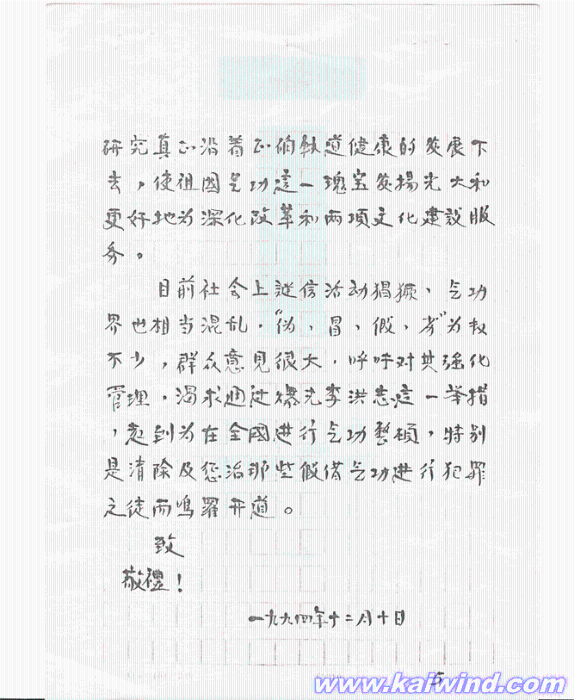 研究真正沿着正确轨道健康的发展下
去，使祖國气功這一瑰宝发揚光大和
更好地为深化改革和两項文化建設服
务。
目前社会上迷信活动猖獗、气功
界也相当混乱，“伪、冒、假、劣”为数
不少，群众意見很大，呼吁对其强化
管理，渴求通过爆光李洪志這一举措
，起到为在全國進行气功整頓，特别
是清除及惩治那些假借气功進行犯罪
之徒而鳴羅开道。
致
敬禮！
一九九四年十二月十日
5
www.kaiwind.com